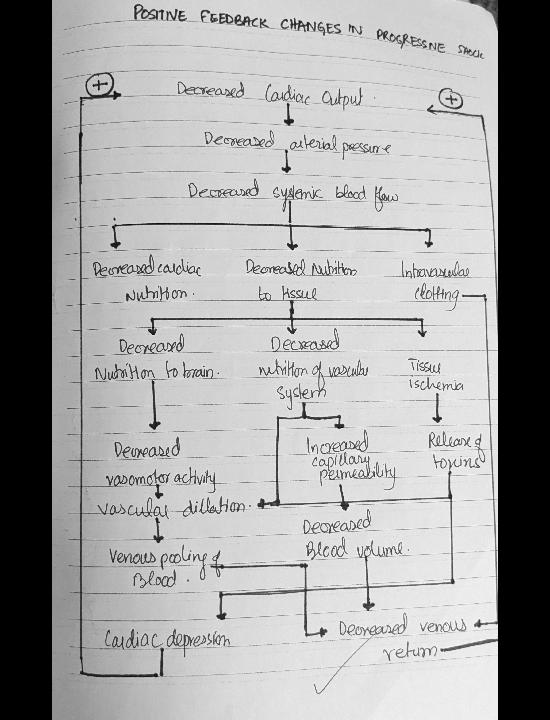 POSITIVE FEEDBACK CHANGES IN PROGRESSIVE SHOCK
+
+
Decreased Cardiac Output.
Decreased arterial pressure
Decreased systemic blood flow
Decreased cardiac
Nutrition.
Decreased Nutrition
to tissue
Intravascular
clotting
Decreased
Nutrition to brain.
Decreased
nutrition of vascular
System
Tissue
ischemia
Decreased
vasomotor activity
Increased
capillary
permeability
Release of
toxins
vascular dillation.
Decreased
Blood volume.
Venous pooling of
Blood.
Cardiac depression
Decreased venous
return